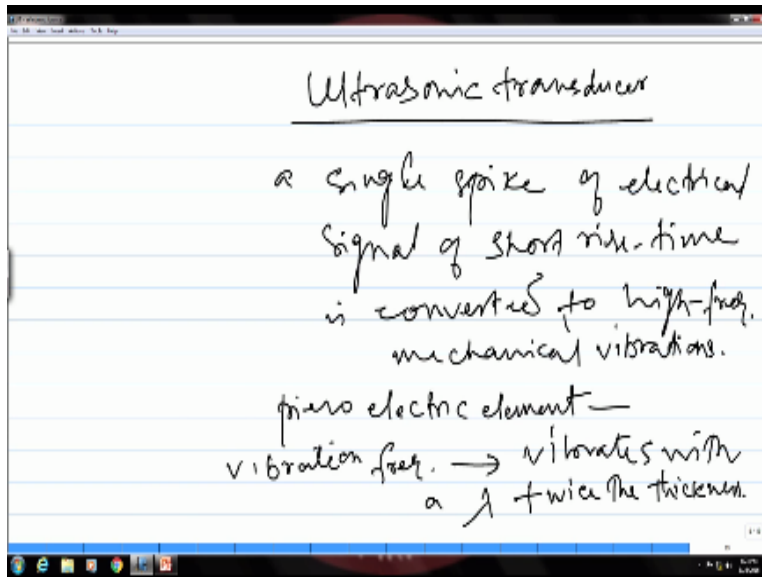 Ultrasonic transducer
a single spike of electrical
signal of short rise-time
is converted to high-freq.
mechanical vibrations.
piezo electric element —
vibration freq. → vibrates with
a λ twice the thickness.